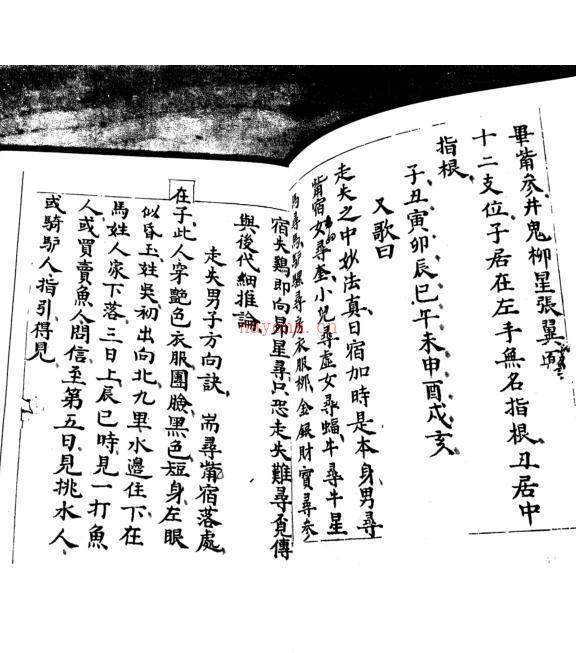 畢觜參井鬼柳星張翼軫
十二支位子居在左手無名指根丑居中
指根
子丑寅卯辰巳午未申酉戌亥
又歌曰
走失之中妙法真日宿加時是本身男尋
觜宿女尋奎小兒尋虛女尋蝠牛尋牛星
馬尋馬驢騾尋房衣服柳金銀財寶尋參
宿失鷄即向昴星尋只恐走失難尋覓傳
與後代細推論
走失男子方向訣 耑尋觜宿落處
在子此人穿艷色衣服團臉黑色短身左眼
似昏玉姓吳初出向北九里水邊住下在
馬姓人家下落三日上辰巳時見一打魚
人或買賣魚人問信至第五日見挑水人
或騎馿人指引得見